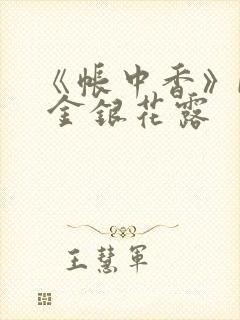 《帐中香》
金银花露
王慧军